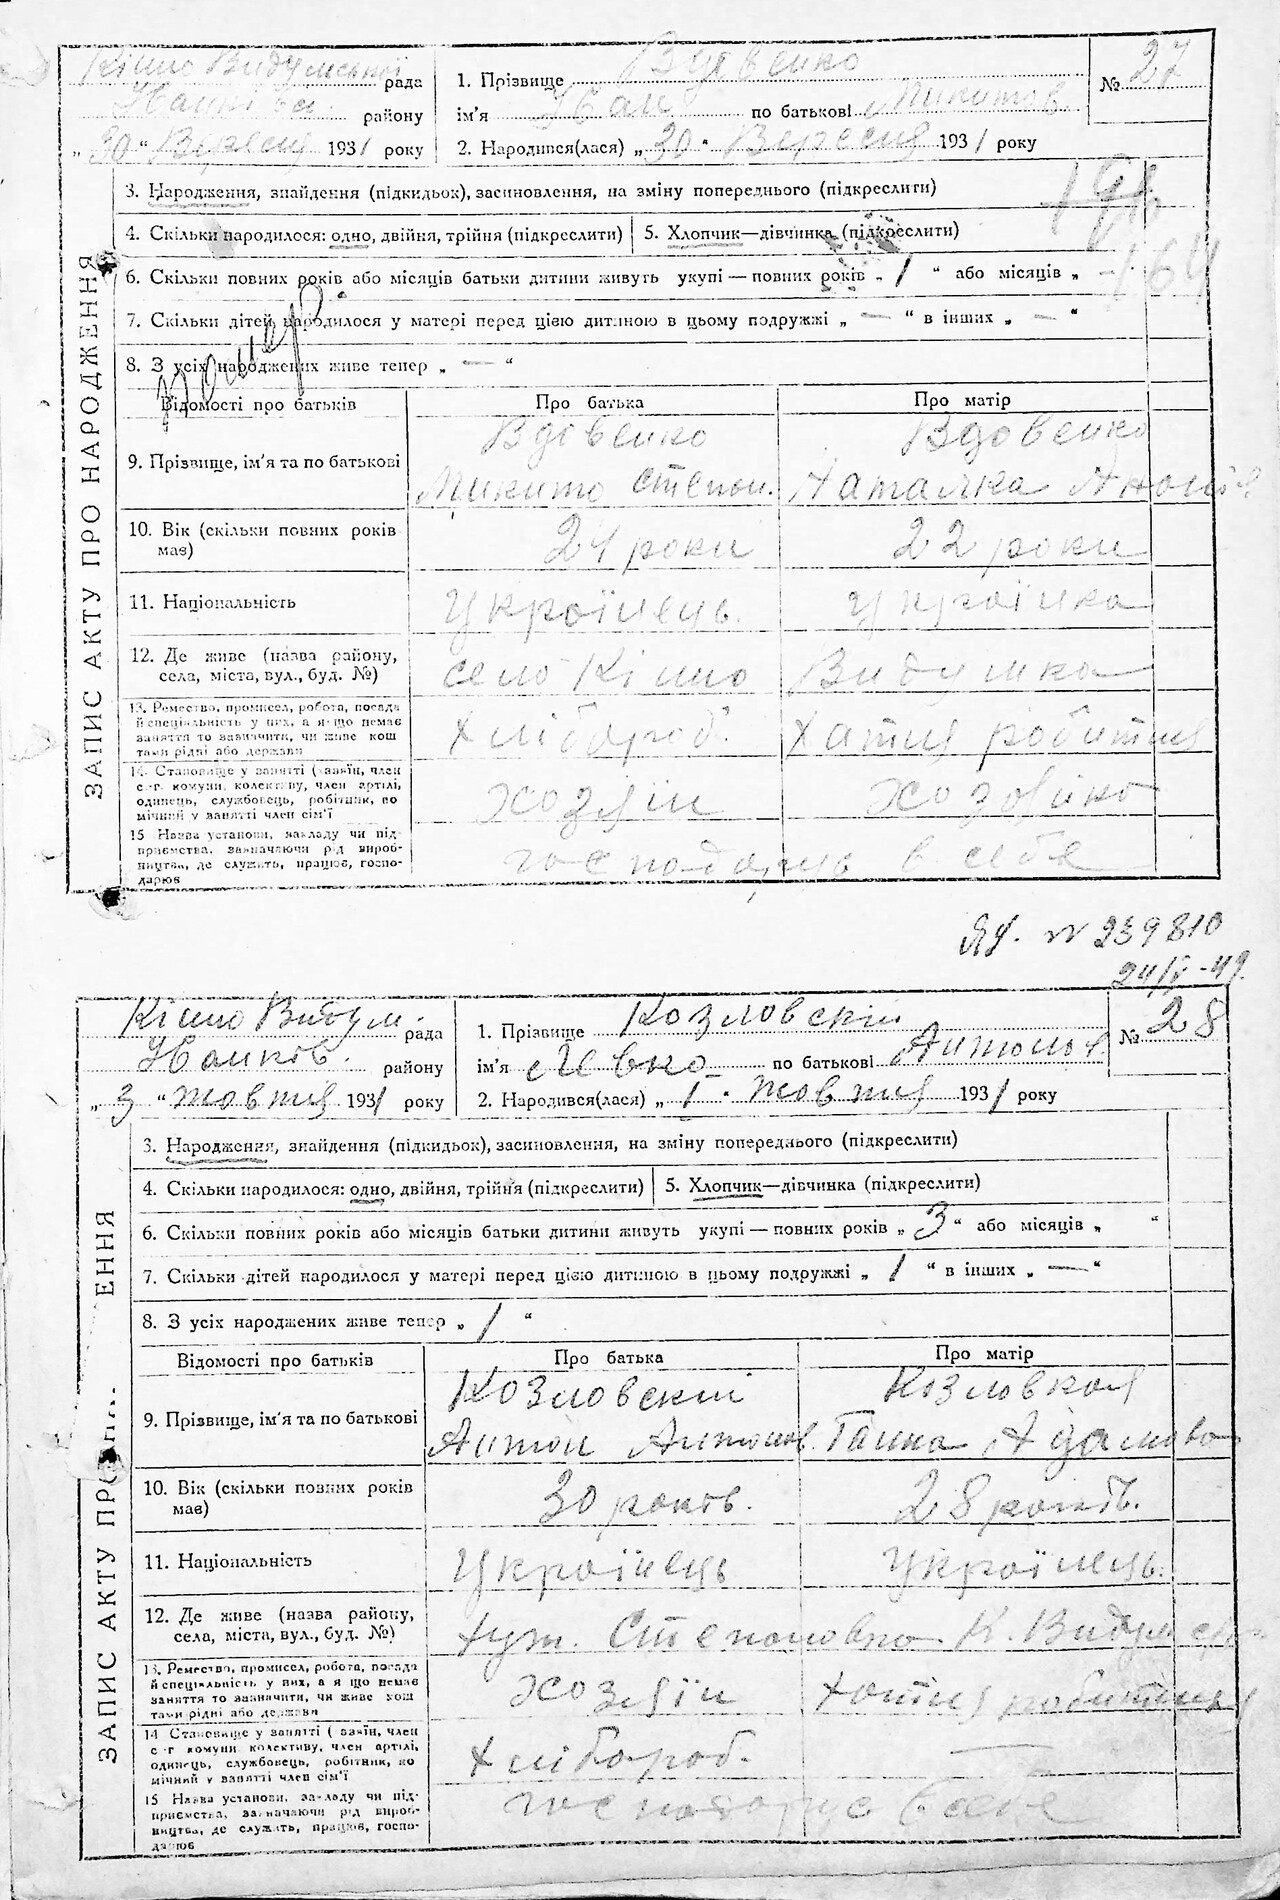 Кішно Видумської рада
району
„ 30 " Вересня 1931 року
1. Прізвище Вдовенко
ім'я Іван по батькові Микитов.
2. Народився(лася) „ 30 " Вересня 1931 року
№ 27
3. Народження, знайдення (підкидьок), засиновлення, на зміну попереднього (підкреслити)
4. Скільки народилося: одно, двійня, трійня (підкреслити)
5. Хлопчик—дівчинка (підкреслити)
6. Скільки повних років або місяців батьки дитини живуть укупі — повних років „ 1 " або місяців „
7. Скільки дітей народилося у матері перед цією дитиною в цьому подружжі „ — " в інших „ — "
8. З усіх народжених живе тепер „ — "
помер
ЗАПИС АКТУ ПРО НАРОДЖЕННЯ
Відомості про батьків
Про батька
Про матір
9. Прізвище, ім'я та по батькові
Вдовенко
Микито Степон.
Вдовенко
Наталка
10. Вік (скільки повних років має)
24 роки
22 роки
11. Національність
Україиець.
Україика
12. Де живе (назва району,
села, міста, вул., буд. №)
село Кішно Видумка
13. Ремество, промисел, робота, посада
й спеціяльність у них, а якщо немає
заняття то зазначити, чи живе кош
тами рідні або держави
хлібороб.
хатня робитниця
14. Становище у занятті (хазяїн, член
с.-г. комуни, колективу, член артілі,
одинець, службовець, робітник, по
мічний у занятті член сім'ї
хозяїн
хозяйка
15 Назва установи, закладу чи під-
приємства, зазначаючи рід вироб-
ництва, де служить, працює, госпо-
дарює
господарує в себе
№ 239810
24/ -49.
Кішно Видум. рада
району
„ 3 " жовтня 1931 року
1. Прізвище Козловскій
ім'я по батькові Антонов.
2. Народився(лася) „ 1 " жовтня 1931 року
№ 28
3. Народження, знайдення (підкидьок), засиновлення, на зміну попереднього (підкреслити)
4. Скільки народилося: одно, двійня, трійня (підкреслити)
5. Хлопчик—дівчинка (підкреслити)
6. Скільки повних років або місяців батьки дитини живуть укупі — повних років „ 3 " або місяців „ "
7. Скільки дітей народилося у матері перед цією дитиною в цьому подружжі „ 1 " в інших „ — "
8. З усіх народжених живе тепер „ 1 "
ЗАПИС АКТУ ПРО ЕННЯ
Відомості про батьків
Про батька
Про матір
9. Прізвище, ім'я та по батькові
Козловскій
Антон Антонов.
Козловкая
Ганна Адамова
10. Вік (скільки повних років має)
30 років.
28 років.
11. Національність
Україиець
Україиець.
12. Де живе (назва району,
села, міста, вул., буд. №)
хут. Степоновка К. Видумськ
13. Ремество, промисел, робота, посада
й спеціяльність у них, а якщо немає
заняття то зазначити, чи живе кош
тами рідні або держави
хозяїн
хотня робитниця
14 Становище у занятті (хазяїн, член
с.-г комуни колективу, член артілі,
одинець, службовець, робітник, по
мічний у занятті член сім'ї
хлібороб.
—
15 Назва установи, закладу чи під-
приємства, зазначаючи рід вироб-
ництва, де служить, працює, госпо-
дарює
господарує в себе